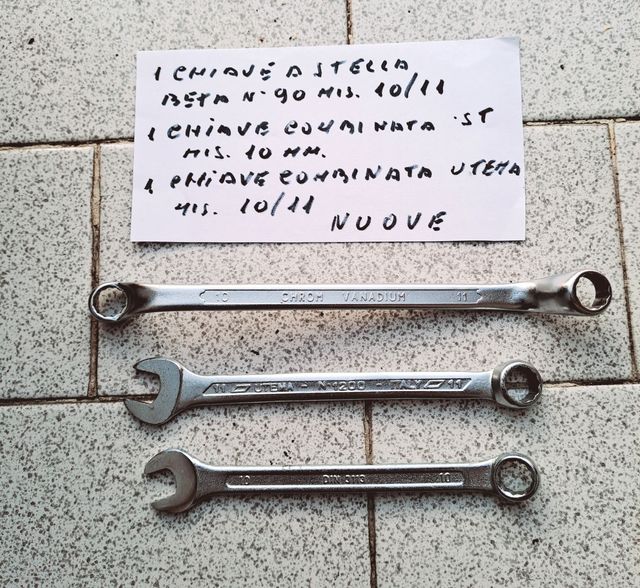 1 CHIAVE A STELLA
BETA N° 90 MIS. 10/11
1 CHIAVE COMBINATA ST
MIS. 10 MM.
1 CHIAVE COMBINATA UTEMA
MIS. 10/11
NUOVE
10 CHROM VANADIUM 11
11 UTEMA - N-1200 - ITALY 11
10 DIN 3113 10